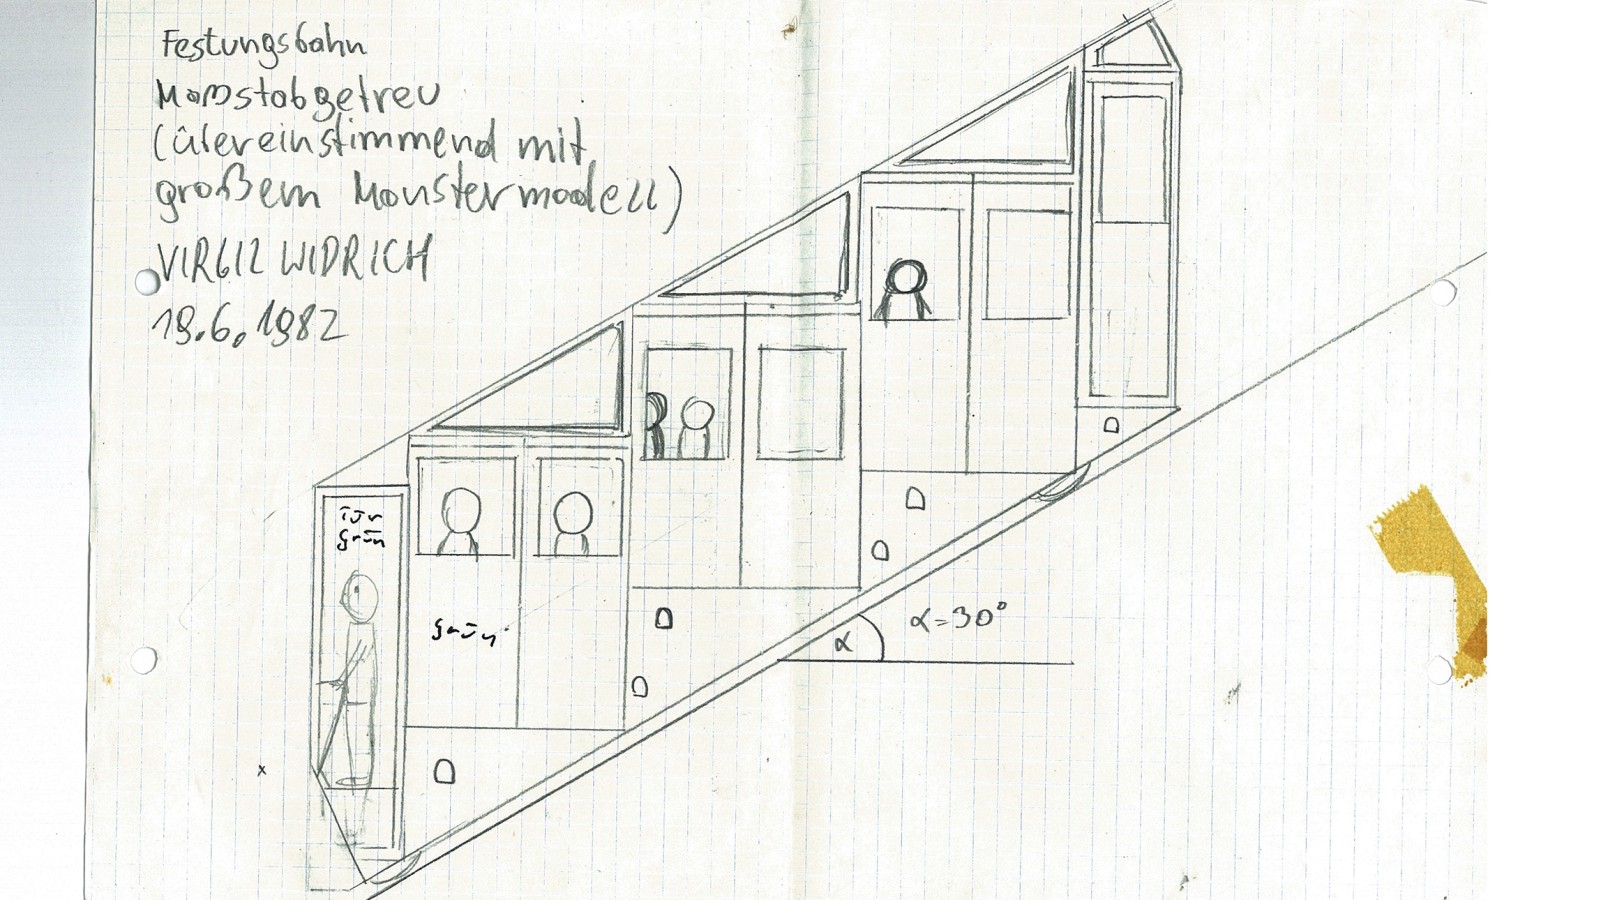 Festungsbahn
Maßstabgetreu
(übereinstimmend mit
großem Monstermodell)
VIRGIL WIDRICH
19.6.1982
Tür
grün
grün
α
α=30°
x